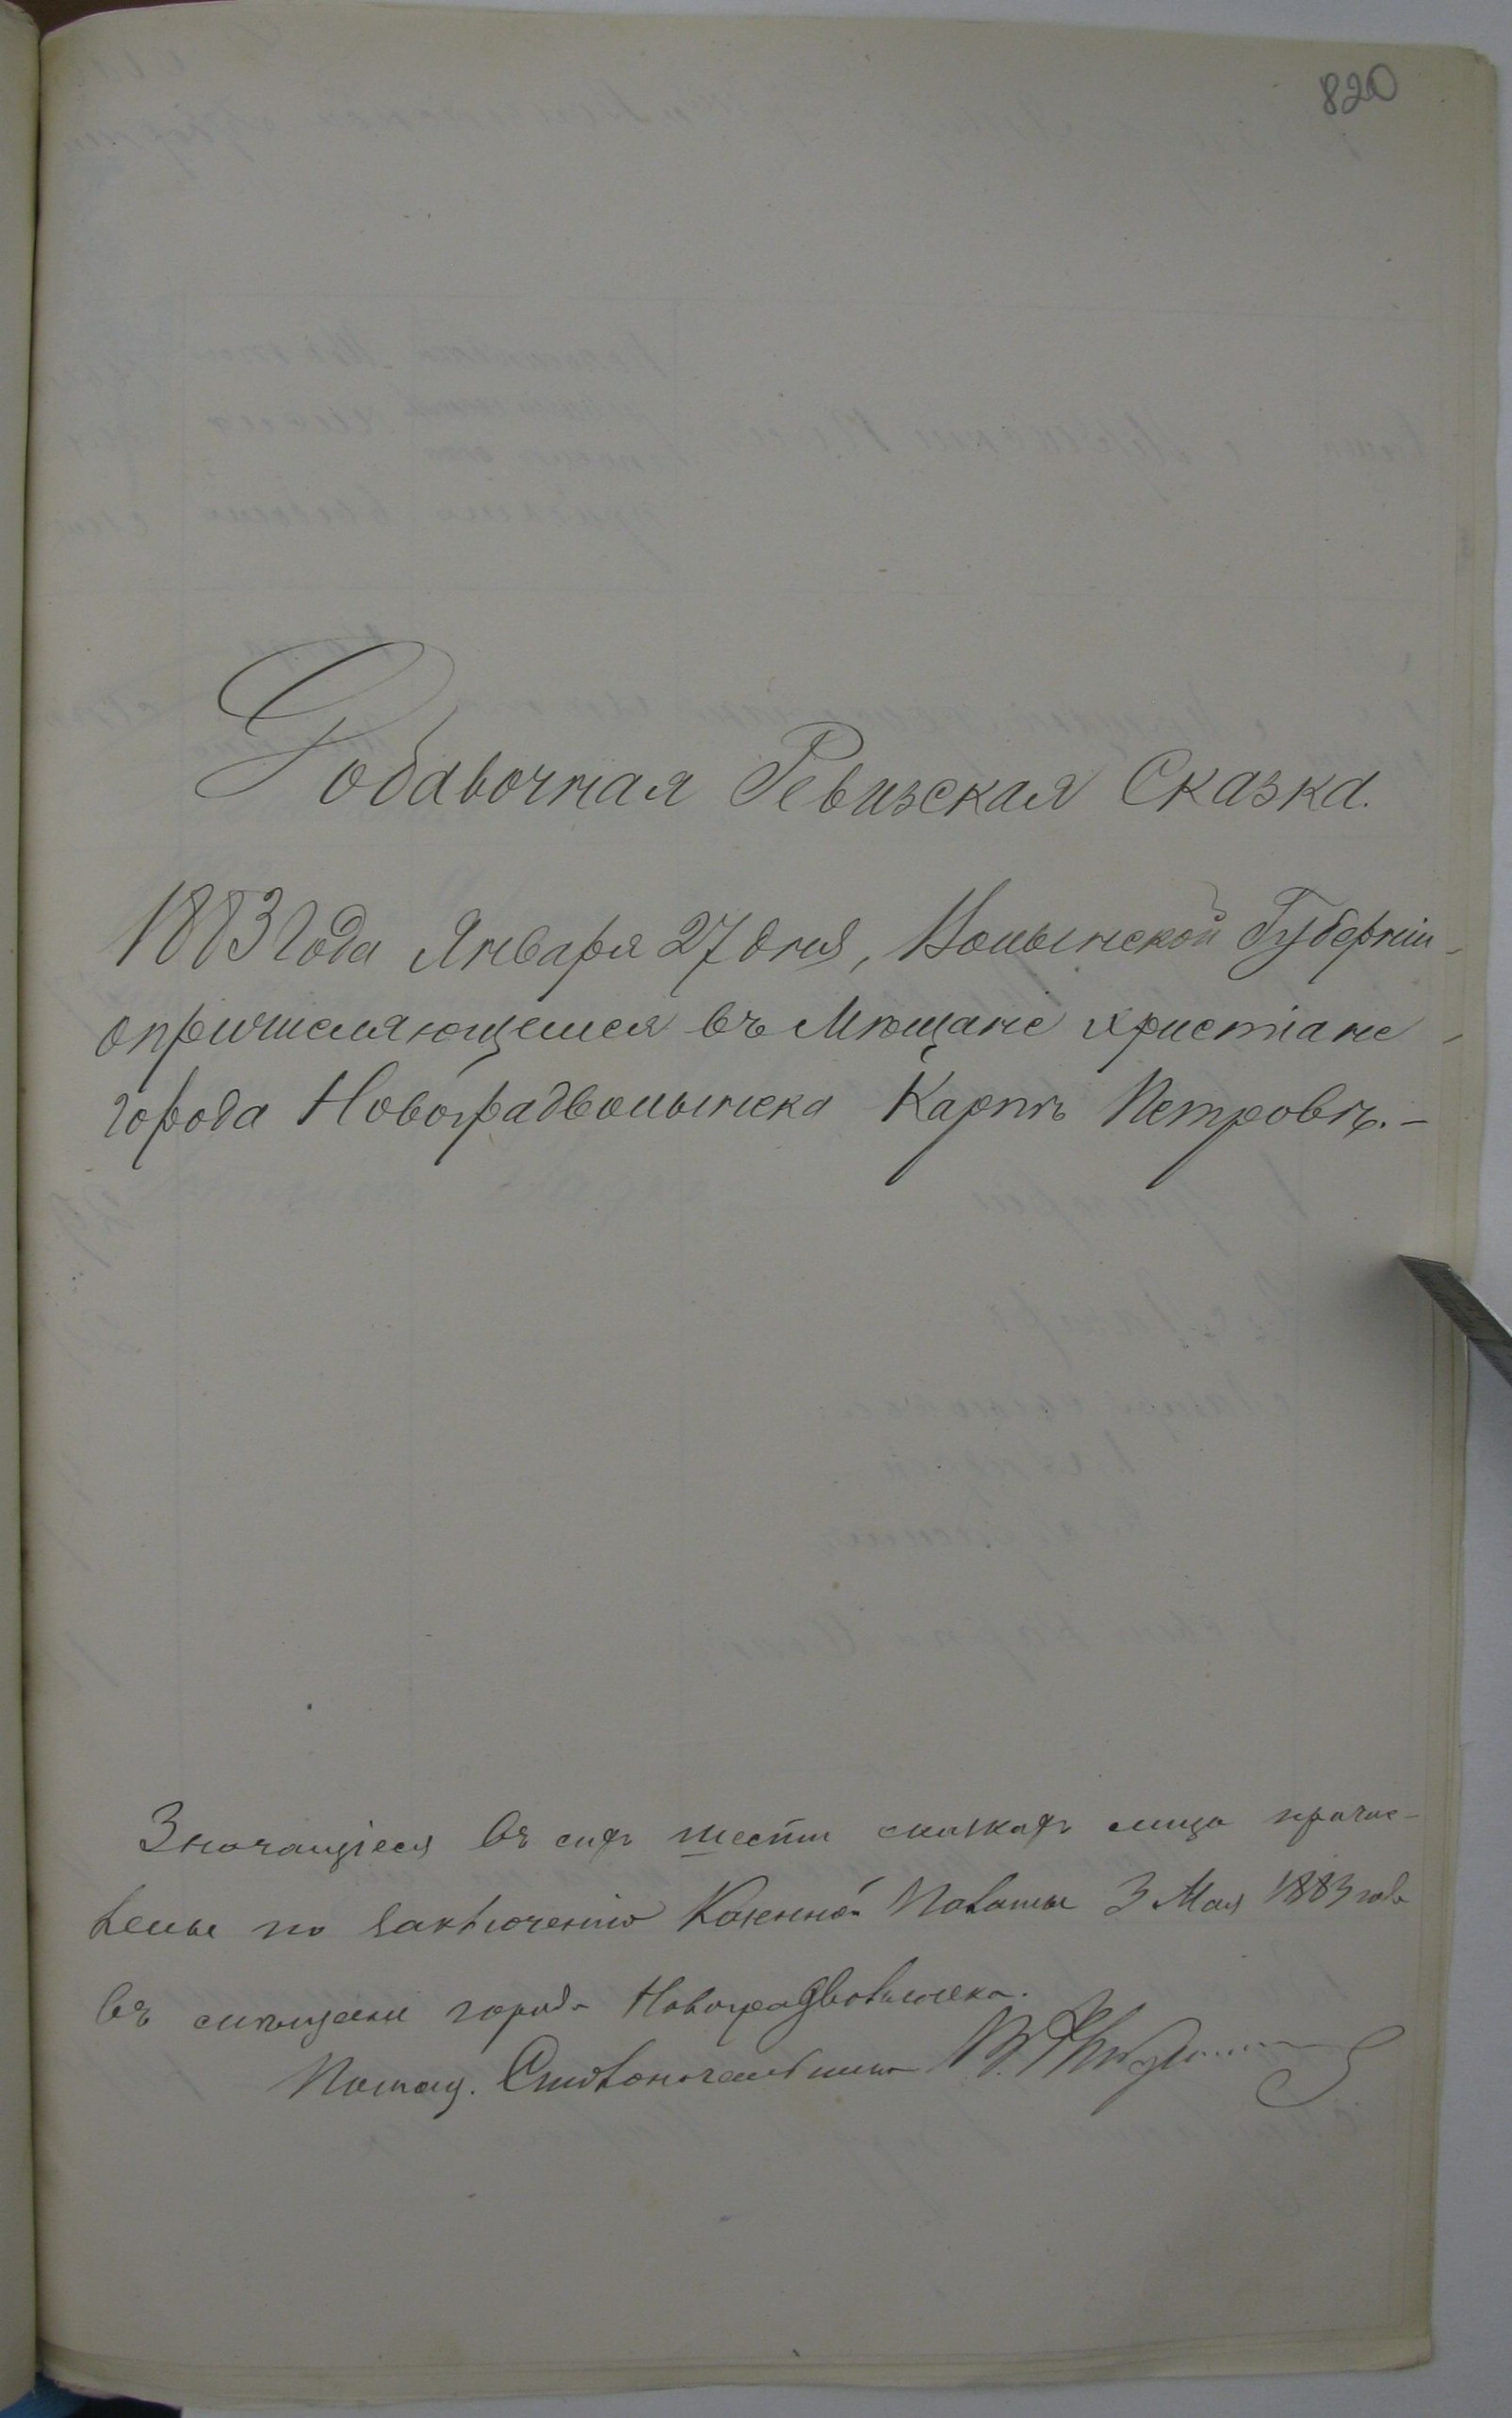 820
Добавочная Ревизская Сказка.
1883 года Января 27 дня, Волынской Губерніи
опричисляющемся въ Мѣщане христіане
города Новоградволынска Карпъ Петровъ. —
Значащіеся въ сих шести сказках лица причис-
лены по заключенію Казенной Палаты 3 Мая 1883 года
въ мѣщане города Новоградволынска.
Помощ. Столоначальника